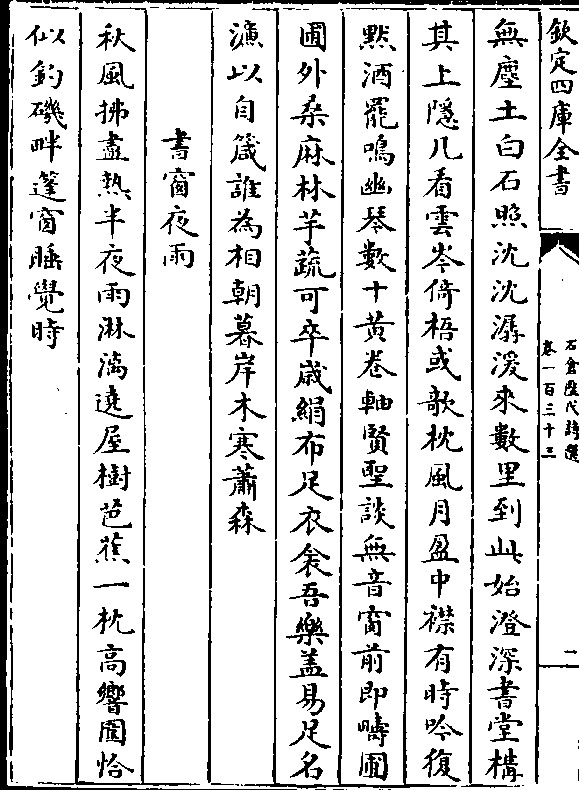 欽定四庫全書
石倉歷代詩選
卷一百三十三
二
無塵土白石照沈沈潺湲來數里到此始澄深書堂構
其上隱几看雲岑倚梧或歌枕風月盈中襟有時吟復
默酒罷鳴幽琴數十黃卷軸賢聖談無音窗前即疇圃
圃外桑麻林芋蔬可卒歲絹布足衣衾吾樂蓋易足名
濂以自箴誰為相朝暮岸木寒蕭森
書窗夜雨
秋風拂盡熱半夜雨淋漓遶屋樹芭蕉一枕高響圍恰
似釣磯畔蓬窗睡覺時